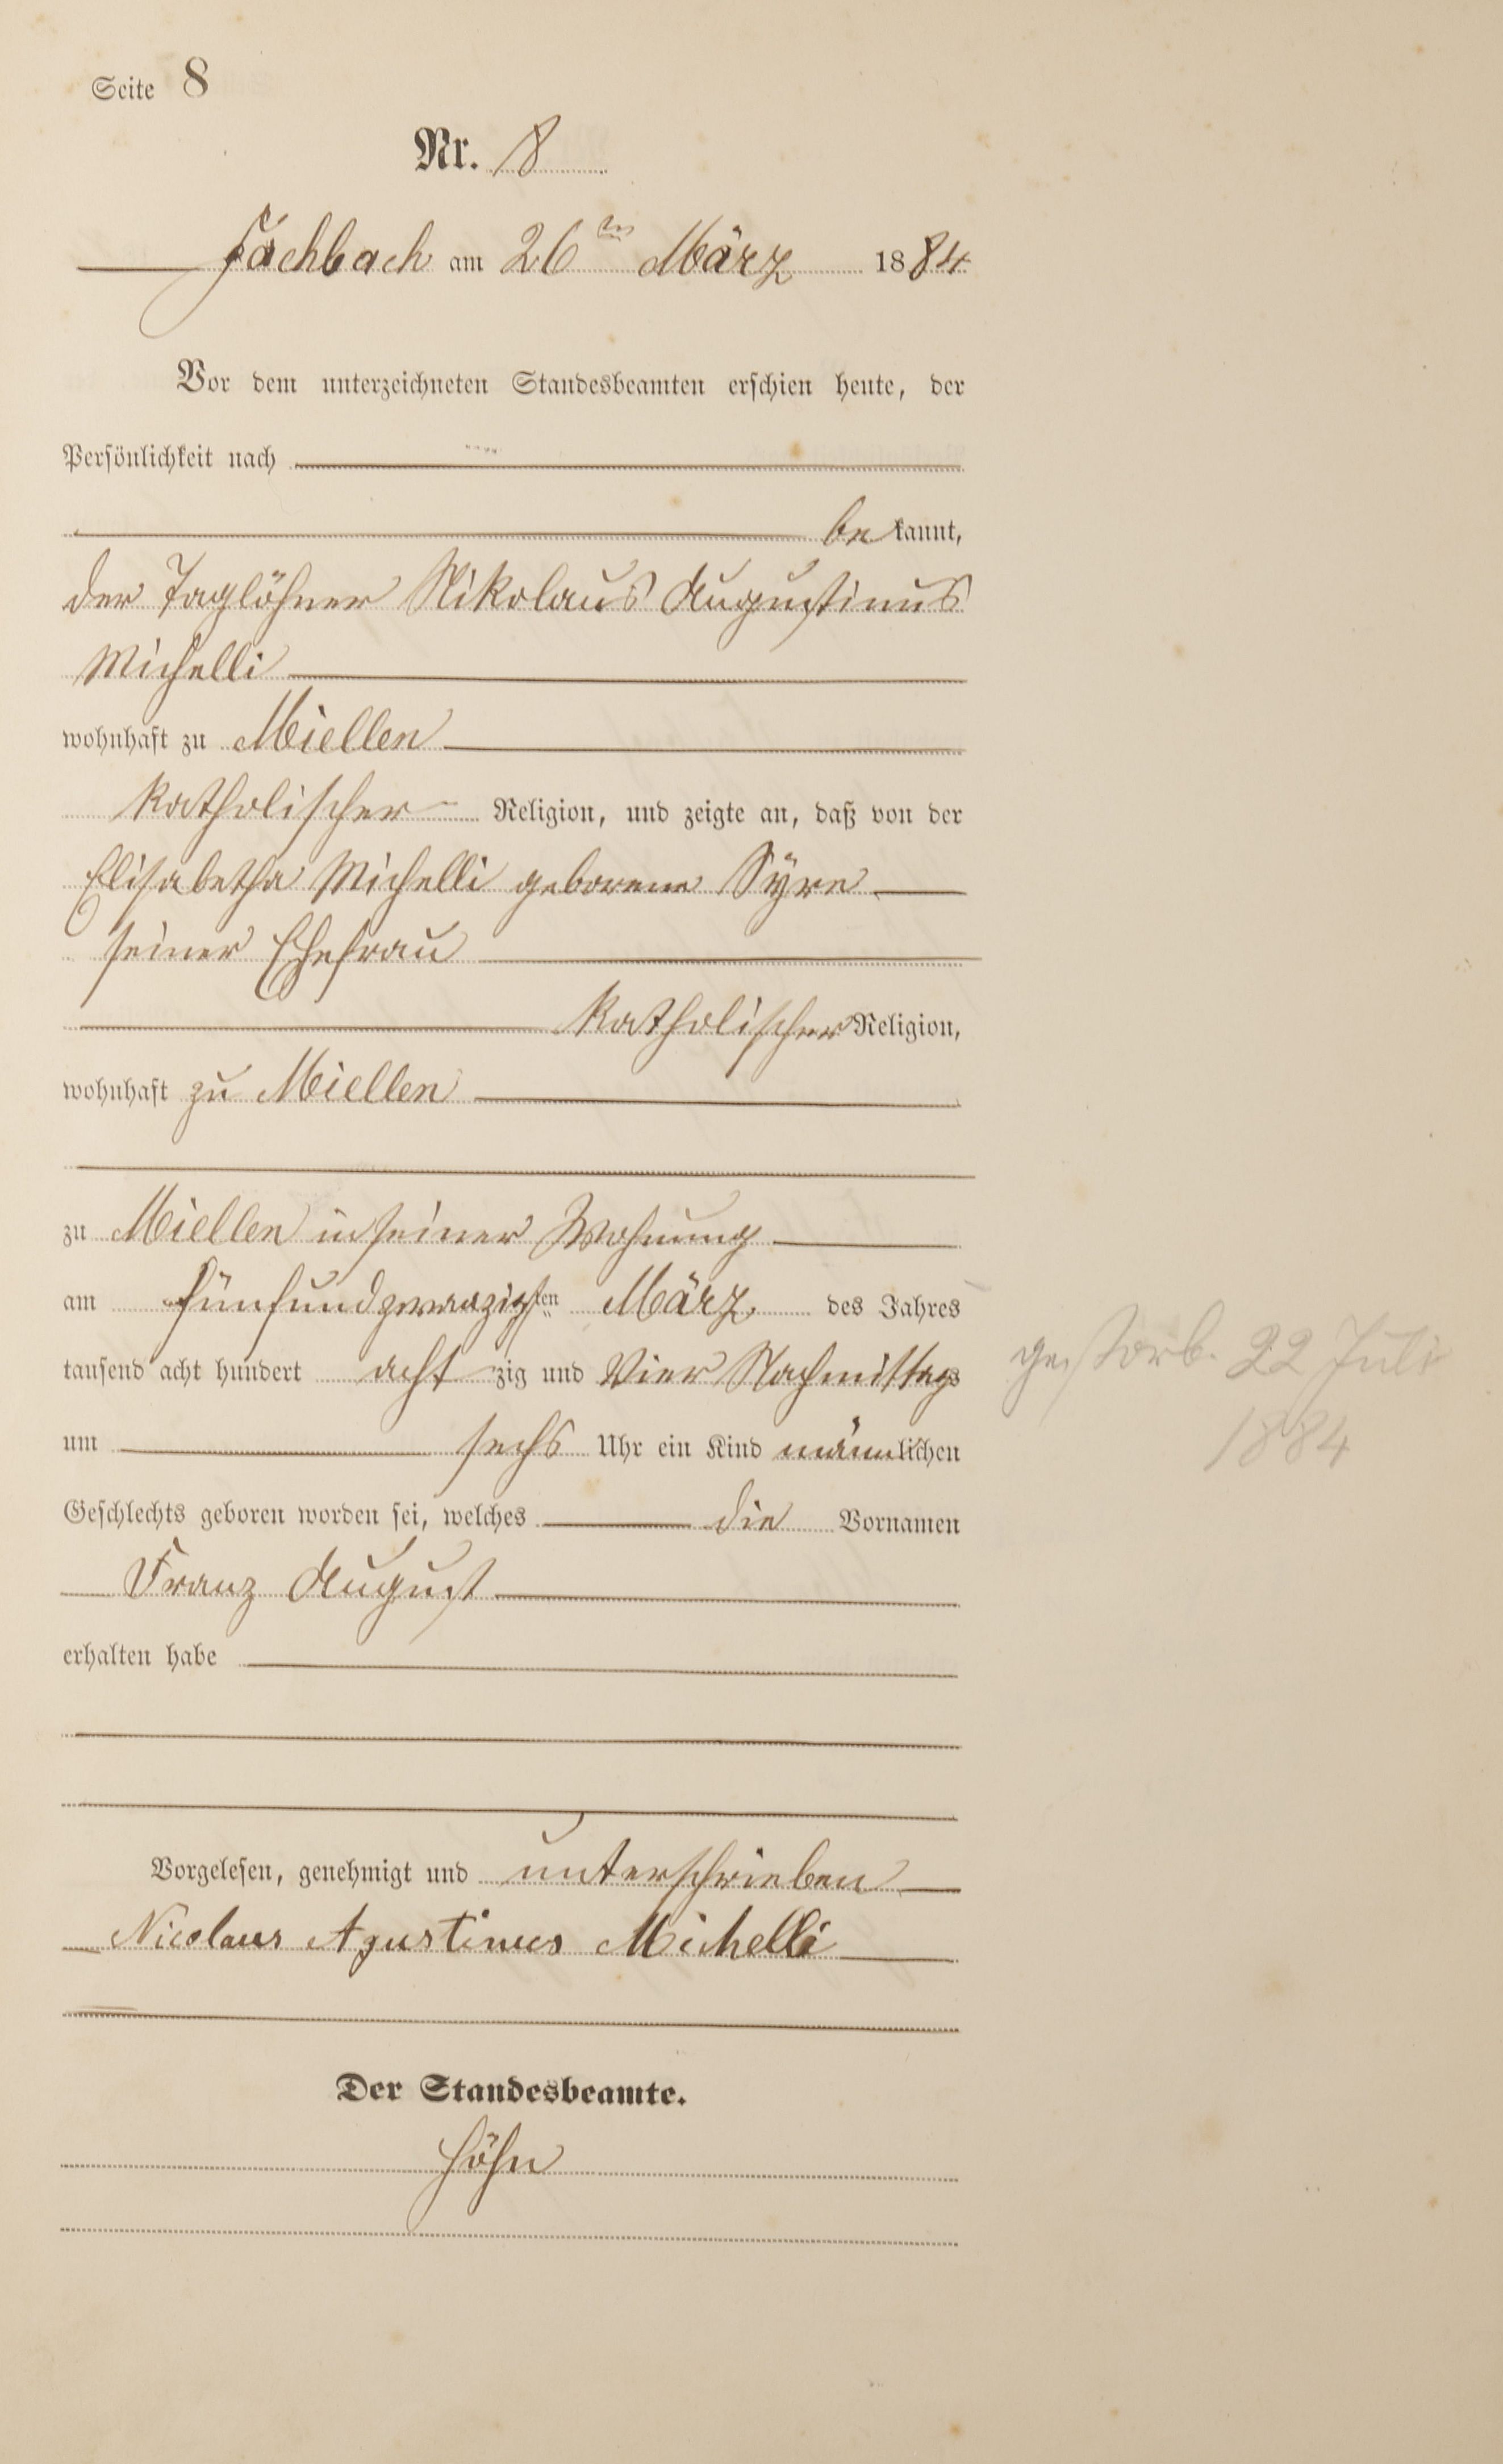 Seite 8
Nr. 8
Fachbach am 26ten März 1884
Vor dem unterzeichneten Standesbeamten erschien heute, der
Persönlichkeit nach
bekannt,
der Taglöhner Nikolaus Augustinus
Michelli
wohnhaft zu Miellen
katholischer Religion, und zeigte an, daß von der
Elisabetha Michelli geborene Syre
seiner Ehefrau
katholischer Religion,
wohnhaft zu Miellen
zu Miellen in seiner Wohnung
am fünfundzwanzigsten März des Jahres
tausend acht hundert acht zig und Vier Nachmittags
um sechs Uhr ein Kind männlichen
Geschlechts geboren worden sei, welches die Vornamen
Franz August
erhalten habe
Vorgelesen, genehmigt und unterschrieben
Nicolaus Agustinus Michelli
Der Standesbeamte.
Höhn
gestorb. 22 Juli
1884